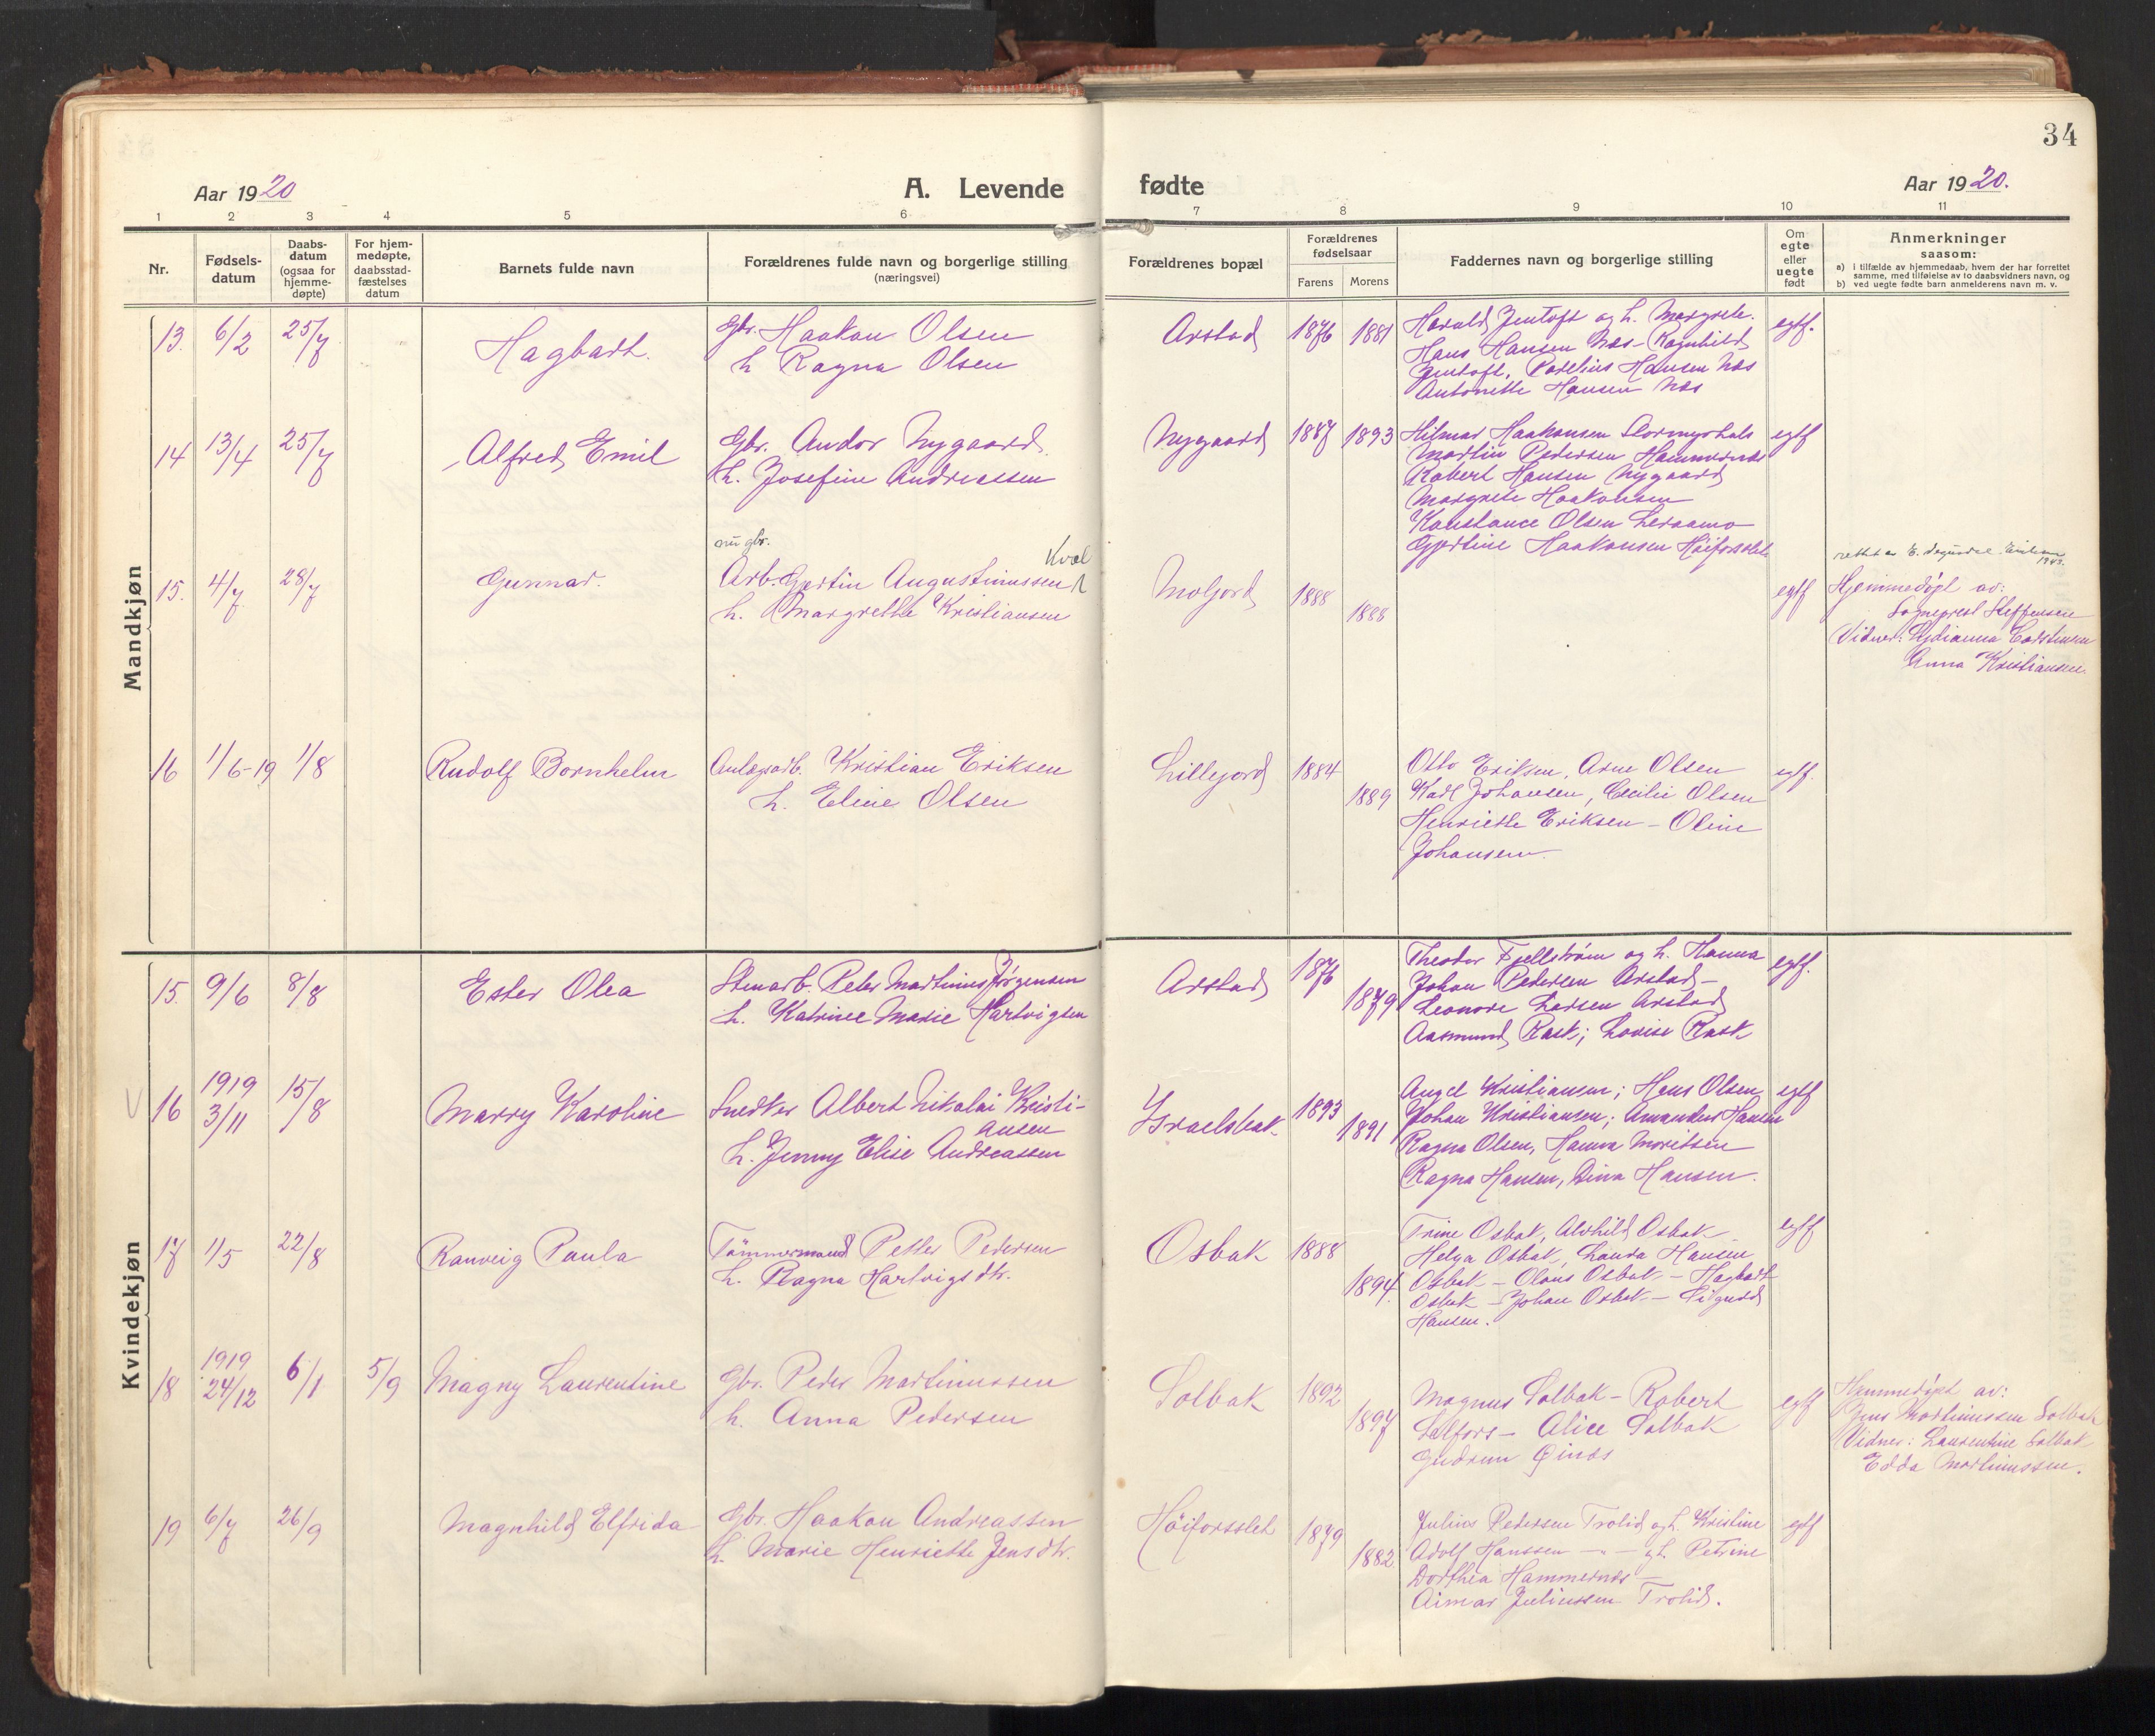 34
Aar 1920
A. Levende fødte
Aar 1920.
1 2 3 4 5 6 7 8 9 10 11
Nr.
Fødsels-
datum
Daabs-
datum
(ogsaa for
hjemme-
døpte)
For hjem-
medøpte,
daabsstad-
fæstelses
datum
Barnets fulde navn
Forældrenes fulde navn og borgerlige stilling
(næringsvei)
Forældrenes bopæl
Forældrenes
fødselsaar
Farens Morens
Faddernes navn og borgerlige stilling
Om
egte
eller
uegte
født
Anmerkninger
saasom:
a) i tilfælde av hjemmedaab, hvem der har forrettet
samme, med tilføielse av to daabsvidners navn, og
b) ved uegte fødte barn anmelderens navn m. v.
Mandkjøn
13. 6/2 25/7
Hagbart.
Gbr. Haakon Olsen
h. Ragna Olsen
Arstad 1876 1881
Harald Jentoft og h. Margrete.
Hans Hansen Næs - Ragnhild
Jentoft, Parelius Hansen Næs
Antonette Hansen Næs
egtf.
14 13/4 25/7
Alfred Emil
Gbr. Andor Nygaard.
h. Josefine Andreassen
Nygaard 1887 1893
Hilmar Haakonsen Stormyrhals
Martin Pedersen Hammernæs
Robert Hansen Nygaard
Margrete Haakonsen
Konstance Olsen Leraamo
Gjertine Haakonsen Høiforsslet
egtf
15. 4/7 28/7
Gunnar.
nu gbr.
Kval
Arb. Gjertin Augustinussen
h. Margrethe Kristiansen
Moljord 1888 1888
egtf
rettet av
Hjemmedøpt av:
Sogneprest Steffensen
Vidner: Lydianna Carstensen
Anna Kristiansen.
16 1/6-19 1/8
Rudolf Bornhelm
Anlægsarb. Kristian Eriksen
h. Eline Olsen
Lillejord 1884 1889
Otto Eriksen, Arne Olsen
Karl Johansen, Cecilie Olsen
Henriette Eriksen - Oline
Johansen.
egtf.
Kvindekjøn
15. 9/6 8/8
Ester Olea
Stenarb. Peter Martinus Jørgensen
h. Katrine Marie Hartvigsen
Arstad 1876 1879
Theodor Fjellstrøm og h. Hanna
Johan Pedersen Arstad -
Leonore Larsen Arstad
Aasmund Rask; Lovise Rask
egtf.
V 16 1919 3/11 15/8
Marry Karoline
Snedker Albert Nikolai Kristi-
ansen
h. Jenny Elise Andreassen
Israelsbak 1893 1891
Angel Kristiansen; Hans Olsen
Johan Kristiansen; Amandus Hansen
Ragna Olsen, Hanna Moritsen
Ragna Hansen, Dina Hansen.
egtf
17 1/5 22/8
Ranveig Paula
Tømmermand Petter Pedersen
h. Ragna Hartvigsdtr.
Osbak 1888 1894
Trine Osbak, Alvhild Osbak
Helga Osbak, Laura Hansen
Osbak - Olaus Osbak - Hagbart
Osbak - Johan Osbak - Sigurd
Hansen.
egtf
18 1919 24/12 6/1 5/9
Magny Laurentine
Gbr. Peder Martinussen
h. Anna Pedersen
Solbak 1892 1897
Magnus Solbak - Robert
Selfors - Alice Solbak
Gudrun Øinæs
egtf
Hjemmedøpt av:
Jens Martinussen Solbak
Vidner: Laurentine Solbak
Edda Martinussen.
19 6/7 26/9
Magnhild Elfrida
Gbr. Haakon Andreassen
h. Marie Henriette Jensdtr.
Høiforsslet 1879 1882
Julius Pedersen Trolid og h. Kristine
Adolf Hanssen - " - og h. Petrine
Dorthea Hammernæs -
Aimar Juliussen Trolid.
egtf